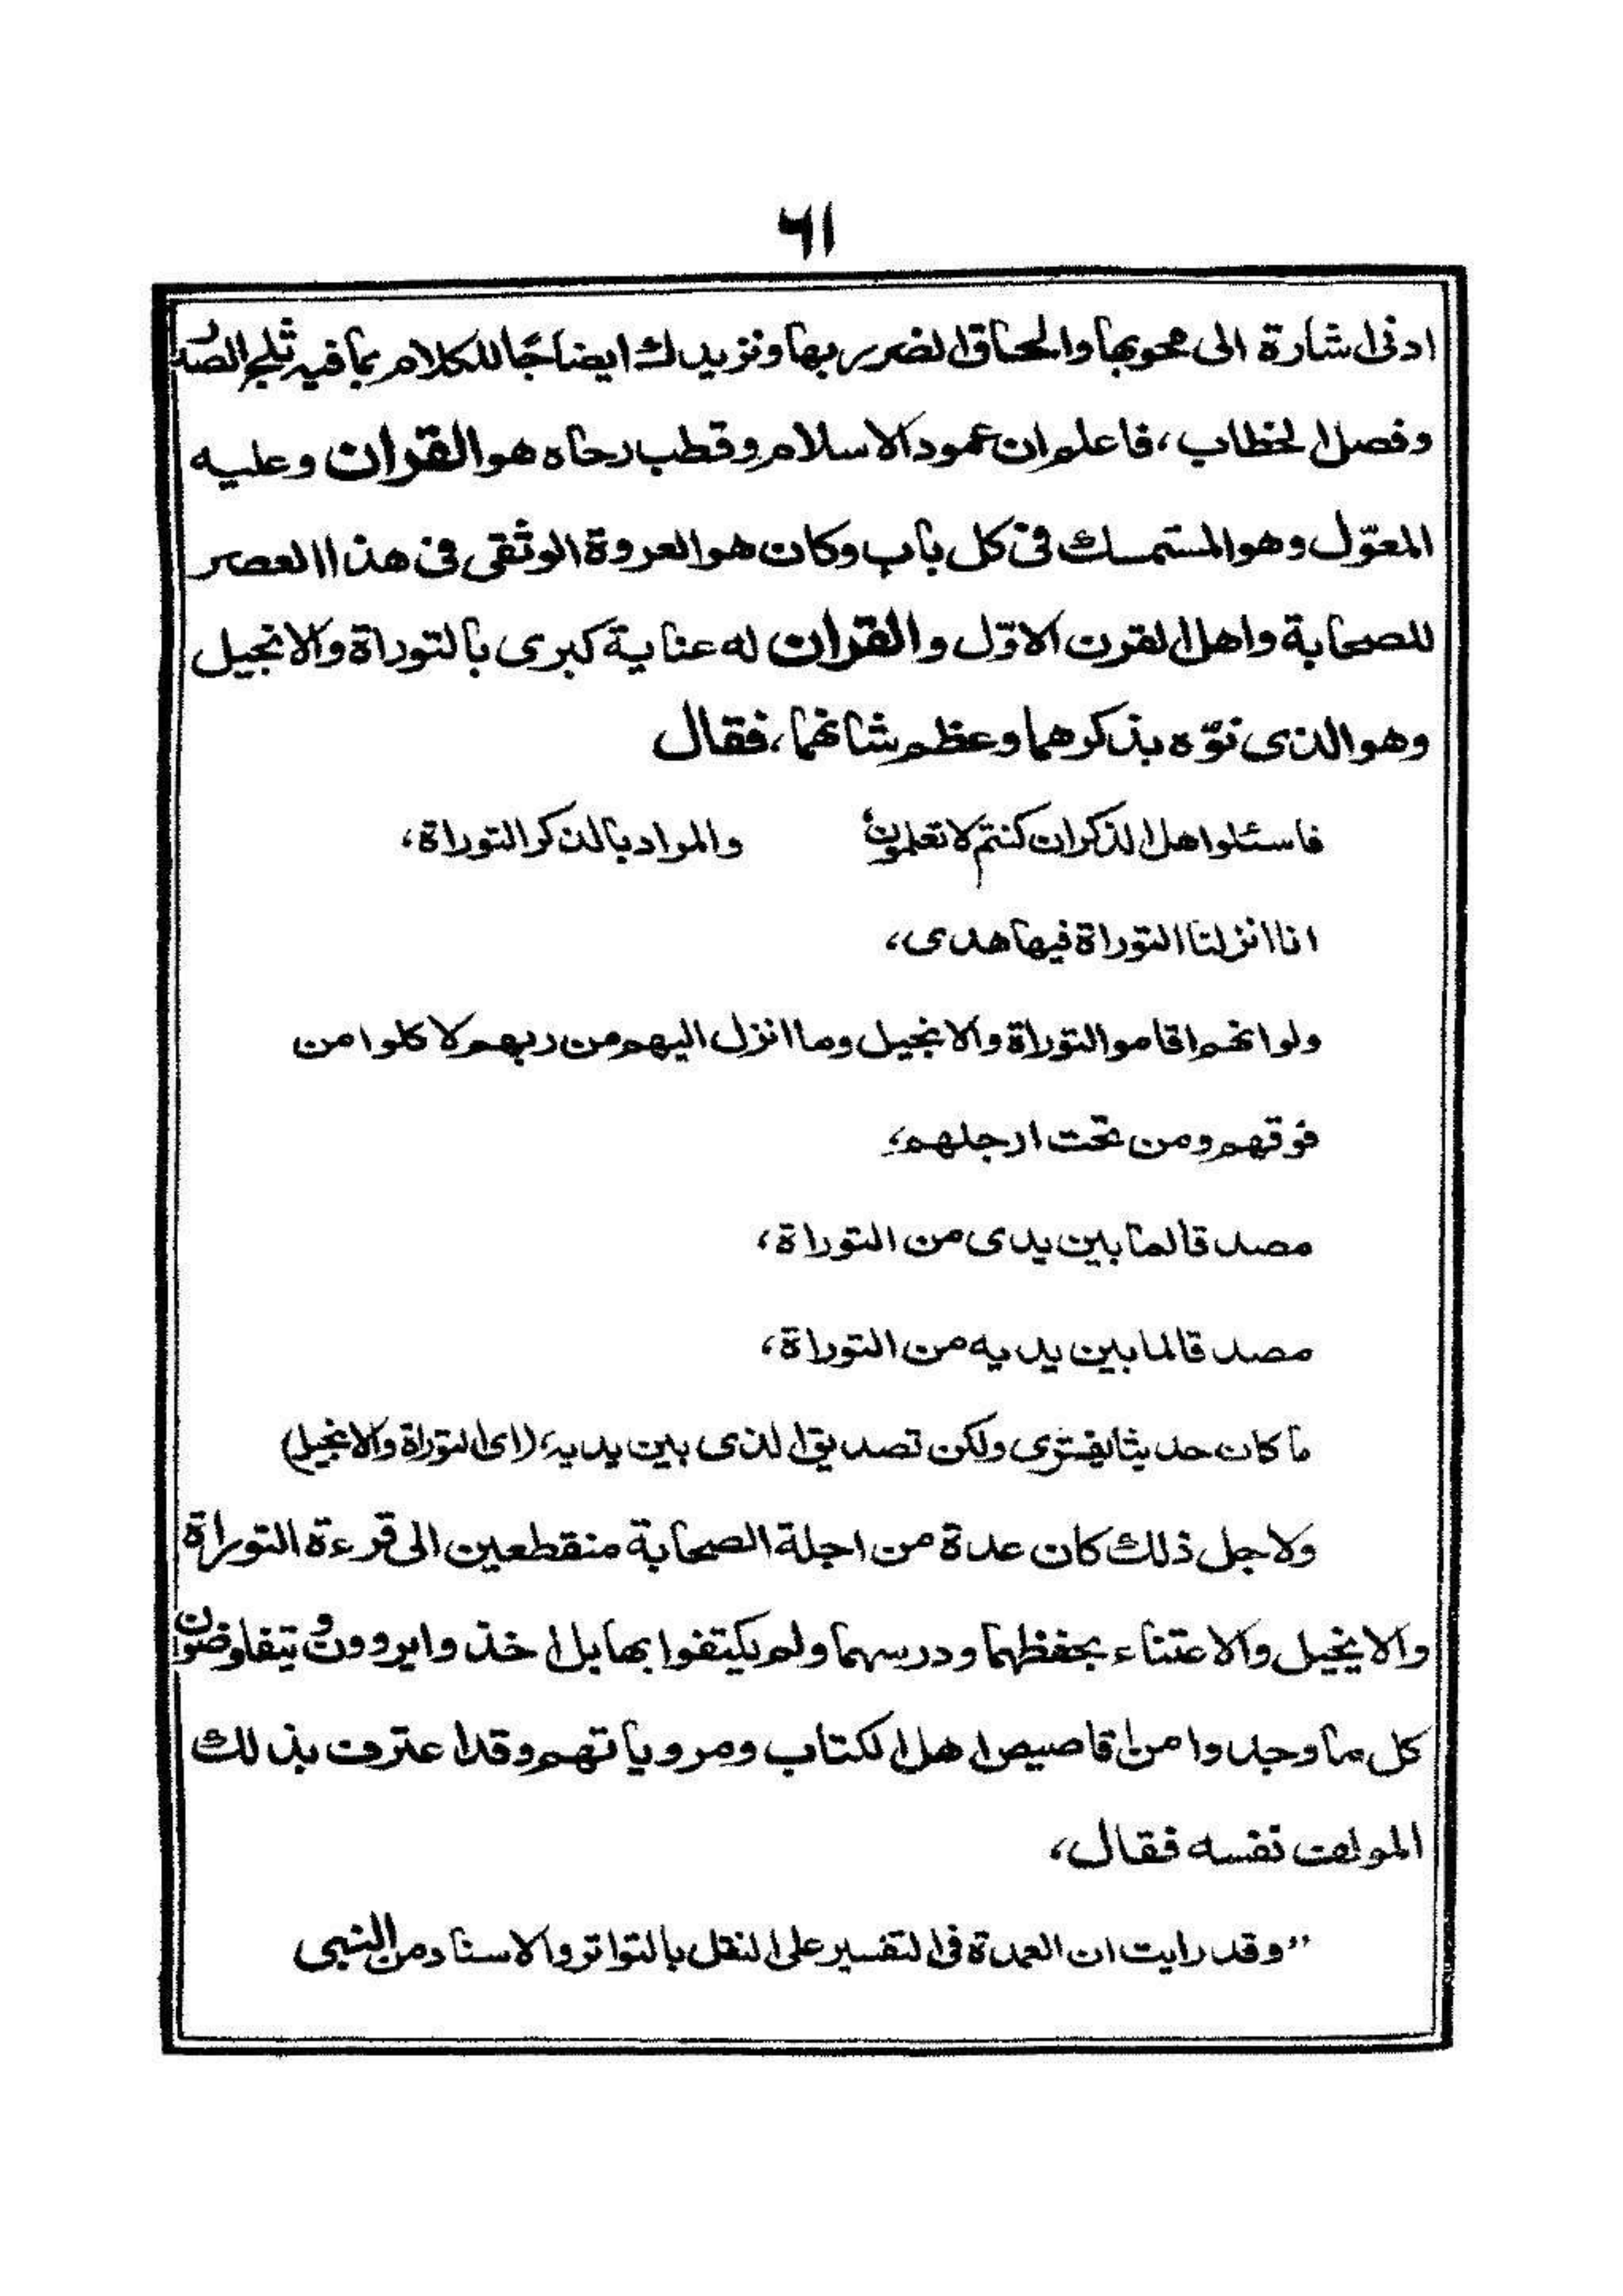 ۶۱
ادنى اشارة الى محوبها والحاق الضرر بها ونزيدك ايضاحًا للكلام بما فيه ثلج الصُدُ
وفصل الخطاب، فاعلم ان عمود الاسلام وقطب رحاه هو القران وعليه
المعوّل وهو المستمسك فى كل باب وكان هو العروة الوثقى فى هذا العصر
للصحابة واهل القرن الاوّل والقران له عناية كبرى بالتوراة والانجيل
وهو الذى نوّه بذكرهما وعظم شانهما، فقال
فاسئلوا اهل الذكر ان كنتم لا تعلمون والمراد بالذكر التوراة،
انا انزلنا التوراة فيها هدى،
ولو انهم اقاموا التوراة والانجيل وما انزل اليهم من ربهم لاكلوا من
فوقهم ومن تحت ارجلهم،
مصدقا لما بين يدى من التوراة،
مصدقا لما بين يديه من التوراة،
ما كان حديثا يفترى ولكن تصديق الذى بين يديه، (اى التوراة والانجيل)
ولاجل ذلك كان عدة من اجلة الصحابة منقطعين الى قرءة التوراة
والانجيل والاعتناء بحفظهما ودرسهما ولم يكتفوا بها بل اخذوا يروون و يتفاوضون
كل ما وجدوا من اقاصيص اهل الكتاب ومروياتهم وقد اعترف بذلك
المولف نفسه فقال،
"وقد رايت ان العمدة فى التفسير على النقل بالتواتر والاسناد من النبى